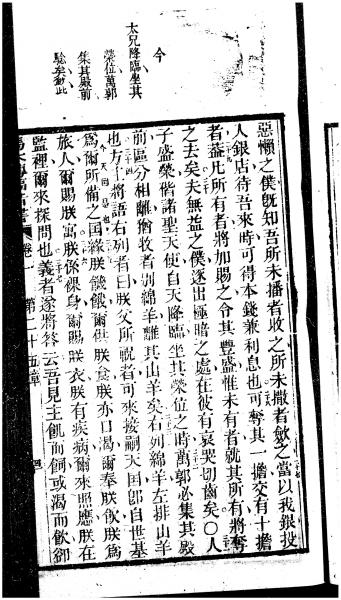 今
太兄降臨坐其
榮位萬郭
集其殿前
騐矣欽此
惡懶之僕旣知吾所未播者收之所未撒者斂之當以我銀投
人銀店待吾來時可得本錢兼利息也可奪其一擔交有十擔
者葢凡所有者將加賜之令其豐盛惟未有者就其所有將奪
之去矣夫無益之僕逐出極暗之處在彼有哀哭切齒矣〇人
子盛榮偕諸聖天使自天降臨坐其榮位之時萬郭必集其殿
前區分相離猶牧者別綿羊離其山羊矣右列綿羊左排山羊
也方主將語右列者曰朕父所祝者可來接嗣天囯卽自世基
今天囯是也
爲爾所備之囯緣朕饑餓爾供朕食朕亦口渴爾奉朕飲朕爲
旅人爾賜朕寓朕係裸身爾賜朕衣朕有疾病爾來照應朕在
監裡爾來探問也義者遂將答云吾見主飢而飼或渴而飲卻
卷一 第二十五章